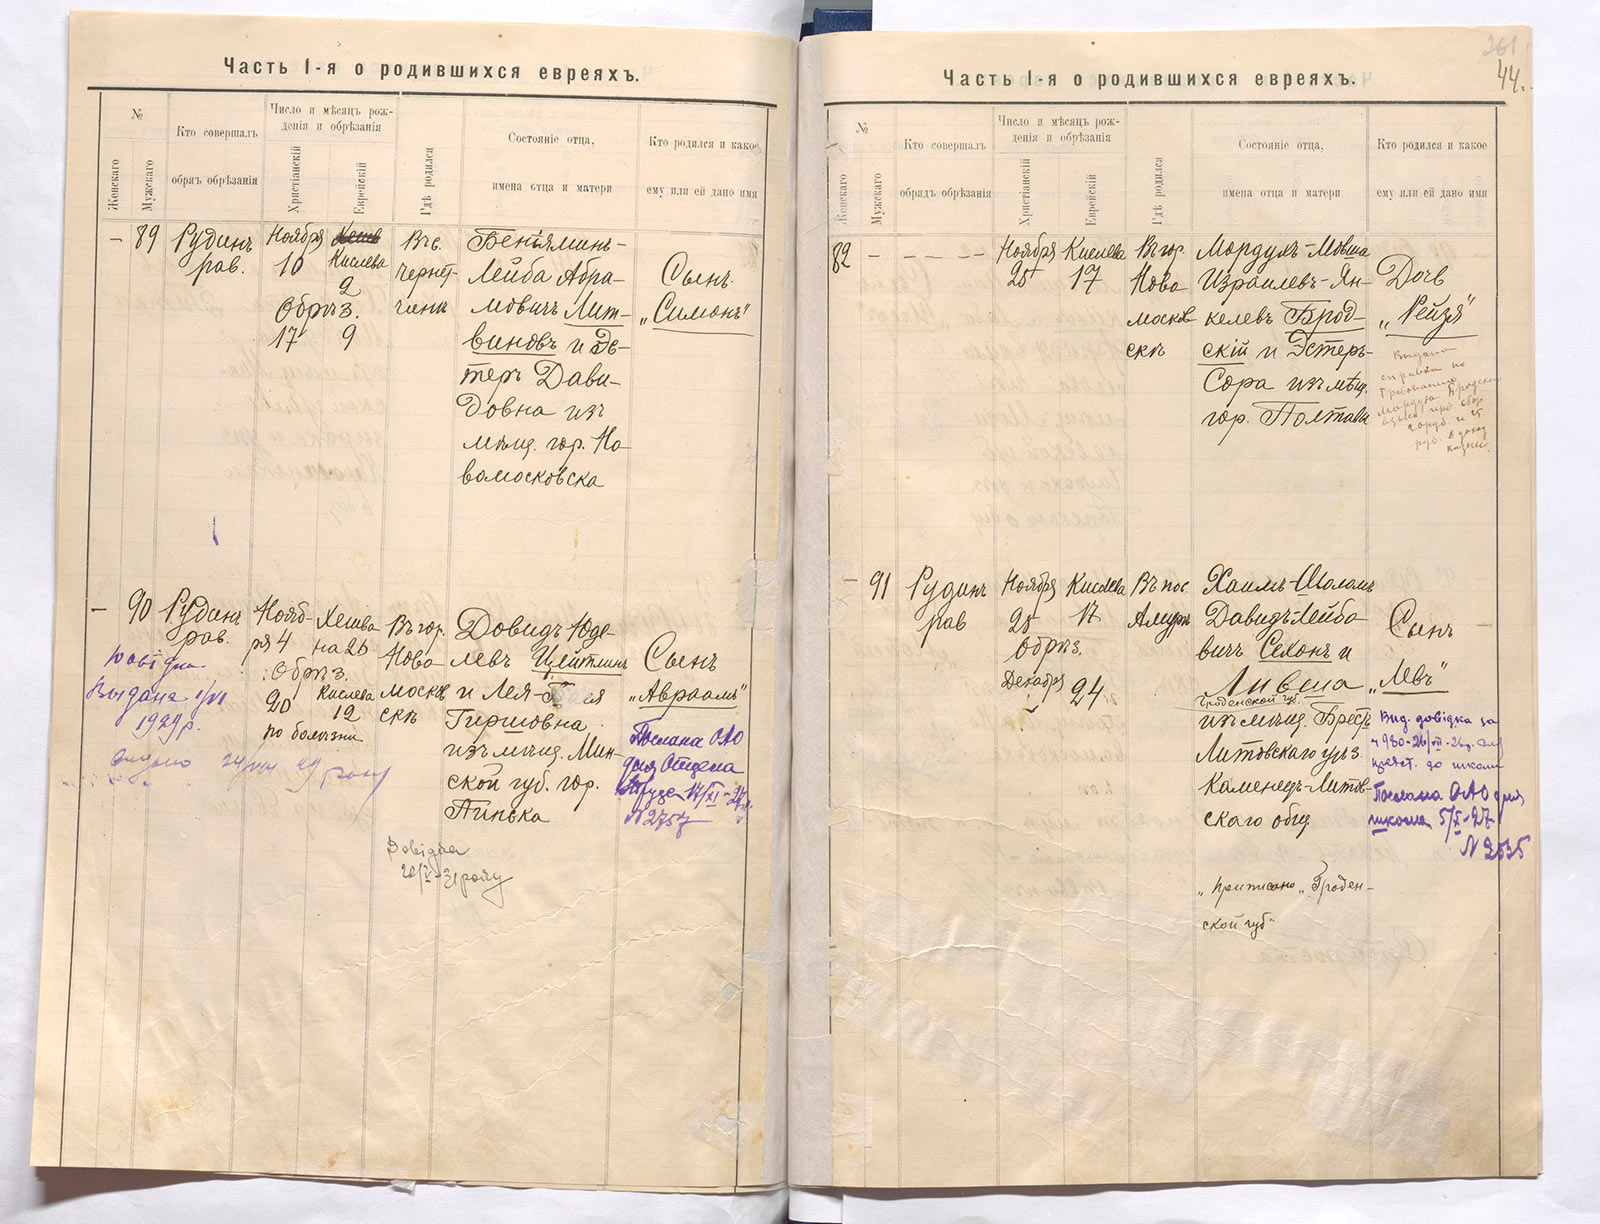 Часть I-я о родившихся евреяхъ.
№
Женскаго
Мужскаго
Кто совершалъ
обрядъ обрѣзанія
Число и мѣсяцъ рож-
денія и обрѣзанія
Христіанскій
Еврейскій
Гдѣ родился
Состояніе отца,
имена отца и матери
Кто родился и какое
ему или ей дано имя
– 89
Рудинъ
рав.
Ноября
10
Обрѣз.
17
Кислева
2
9
Въ с.
Чернет-
чинѣ
Беніяминъ-
Лейба Абра-
мовичъ Лит-
виновъ и Эс-
теръ Дави-
довна изъ
мѣщ. гор. Но-
вомосковска
Сынъ
„Симонъ"
– 90
Рудинъ
рав.
Нояб-
ря 4
Обрѣз.
20
по болѣзни
Хешва
на 26
Кислева
12
Въ гор.
Ново
москов
скѣ
Довидъ Юде-
левъ Цейтлинъ
и Лея-
Гиршовна
изъ мѣщ. Мин-
ской губ. гор.
Пинска
Сынъ
„Авраамъ"
Выдана
1929 р.
Послана ОАО
для Отдела
Труда 17/XI-27
N 2757
Довідка
Часть I-я о родившихся евреяхъ.
44.
№
Женскаго
Мужскаго
Кто совершалъ
обрядъ обрѣзанія
Число и мѣсяцъ рож-
денія и обрѣзанія
Христіанскій
Еврейскій
Гдѣ родился
Состояніе отца,
имена отца и матери
Кто родился и какое
ему или ей дано имя
82 –
– – –
Ноября
25
Кислева
17
Въ гор.
Ново
москов
скѣ
Мордухъ-Мовша
Израилевъ-Ян-
келевъ Брод-
скій и Эстеръ-
Сора изъ мѣщ.
гор. Полтавы
Дочь
„Рейзя"
Выдана
справка по
требованію
Мордуха Бродскаго
– 91
Рудинъ
рав
Ноября
25
Обрѣз.
Декабря
1
Кислева
17
24
Въ пос.
Амурѣ
Хаимъ-Шоломъ
Давидъ-Лейбо
вичъ Сехонъ и
Гроденской губ.
изъ мѣщ. Брестъ
Литовскаго уѣз.
Каменецъ-Литов-
скаго общ
„приписано „Гроден-
ской губ"
Сынъ
„Левъ"
Вид. довідка за
до школи
Послана ОАО для
школы 5/X-27
N 2535